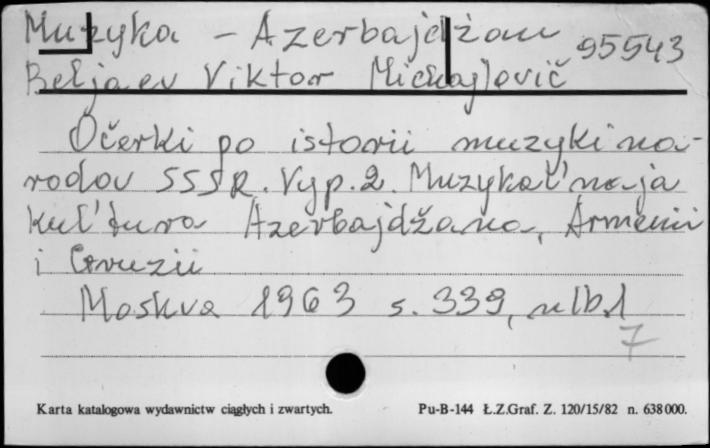 Muzyka - Azerbajdżan 95543
Beljaev Viktor Michajlovič
Očerki po istorii muzyki na-
rodov SSSR. Vyp. 2. Muzykal'naja
kul'tura Azerbajdžana, Armenii
i Gruzii
Moskva 1963 s. 339, nlb.1
7
Karta katalogowa wydawnictw ciągłych i zwartych. Pu-B-144 Ł.Z.Graf. Z. 120/15/82 n. 638000.